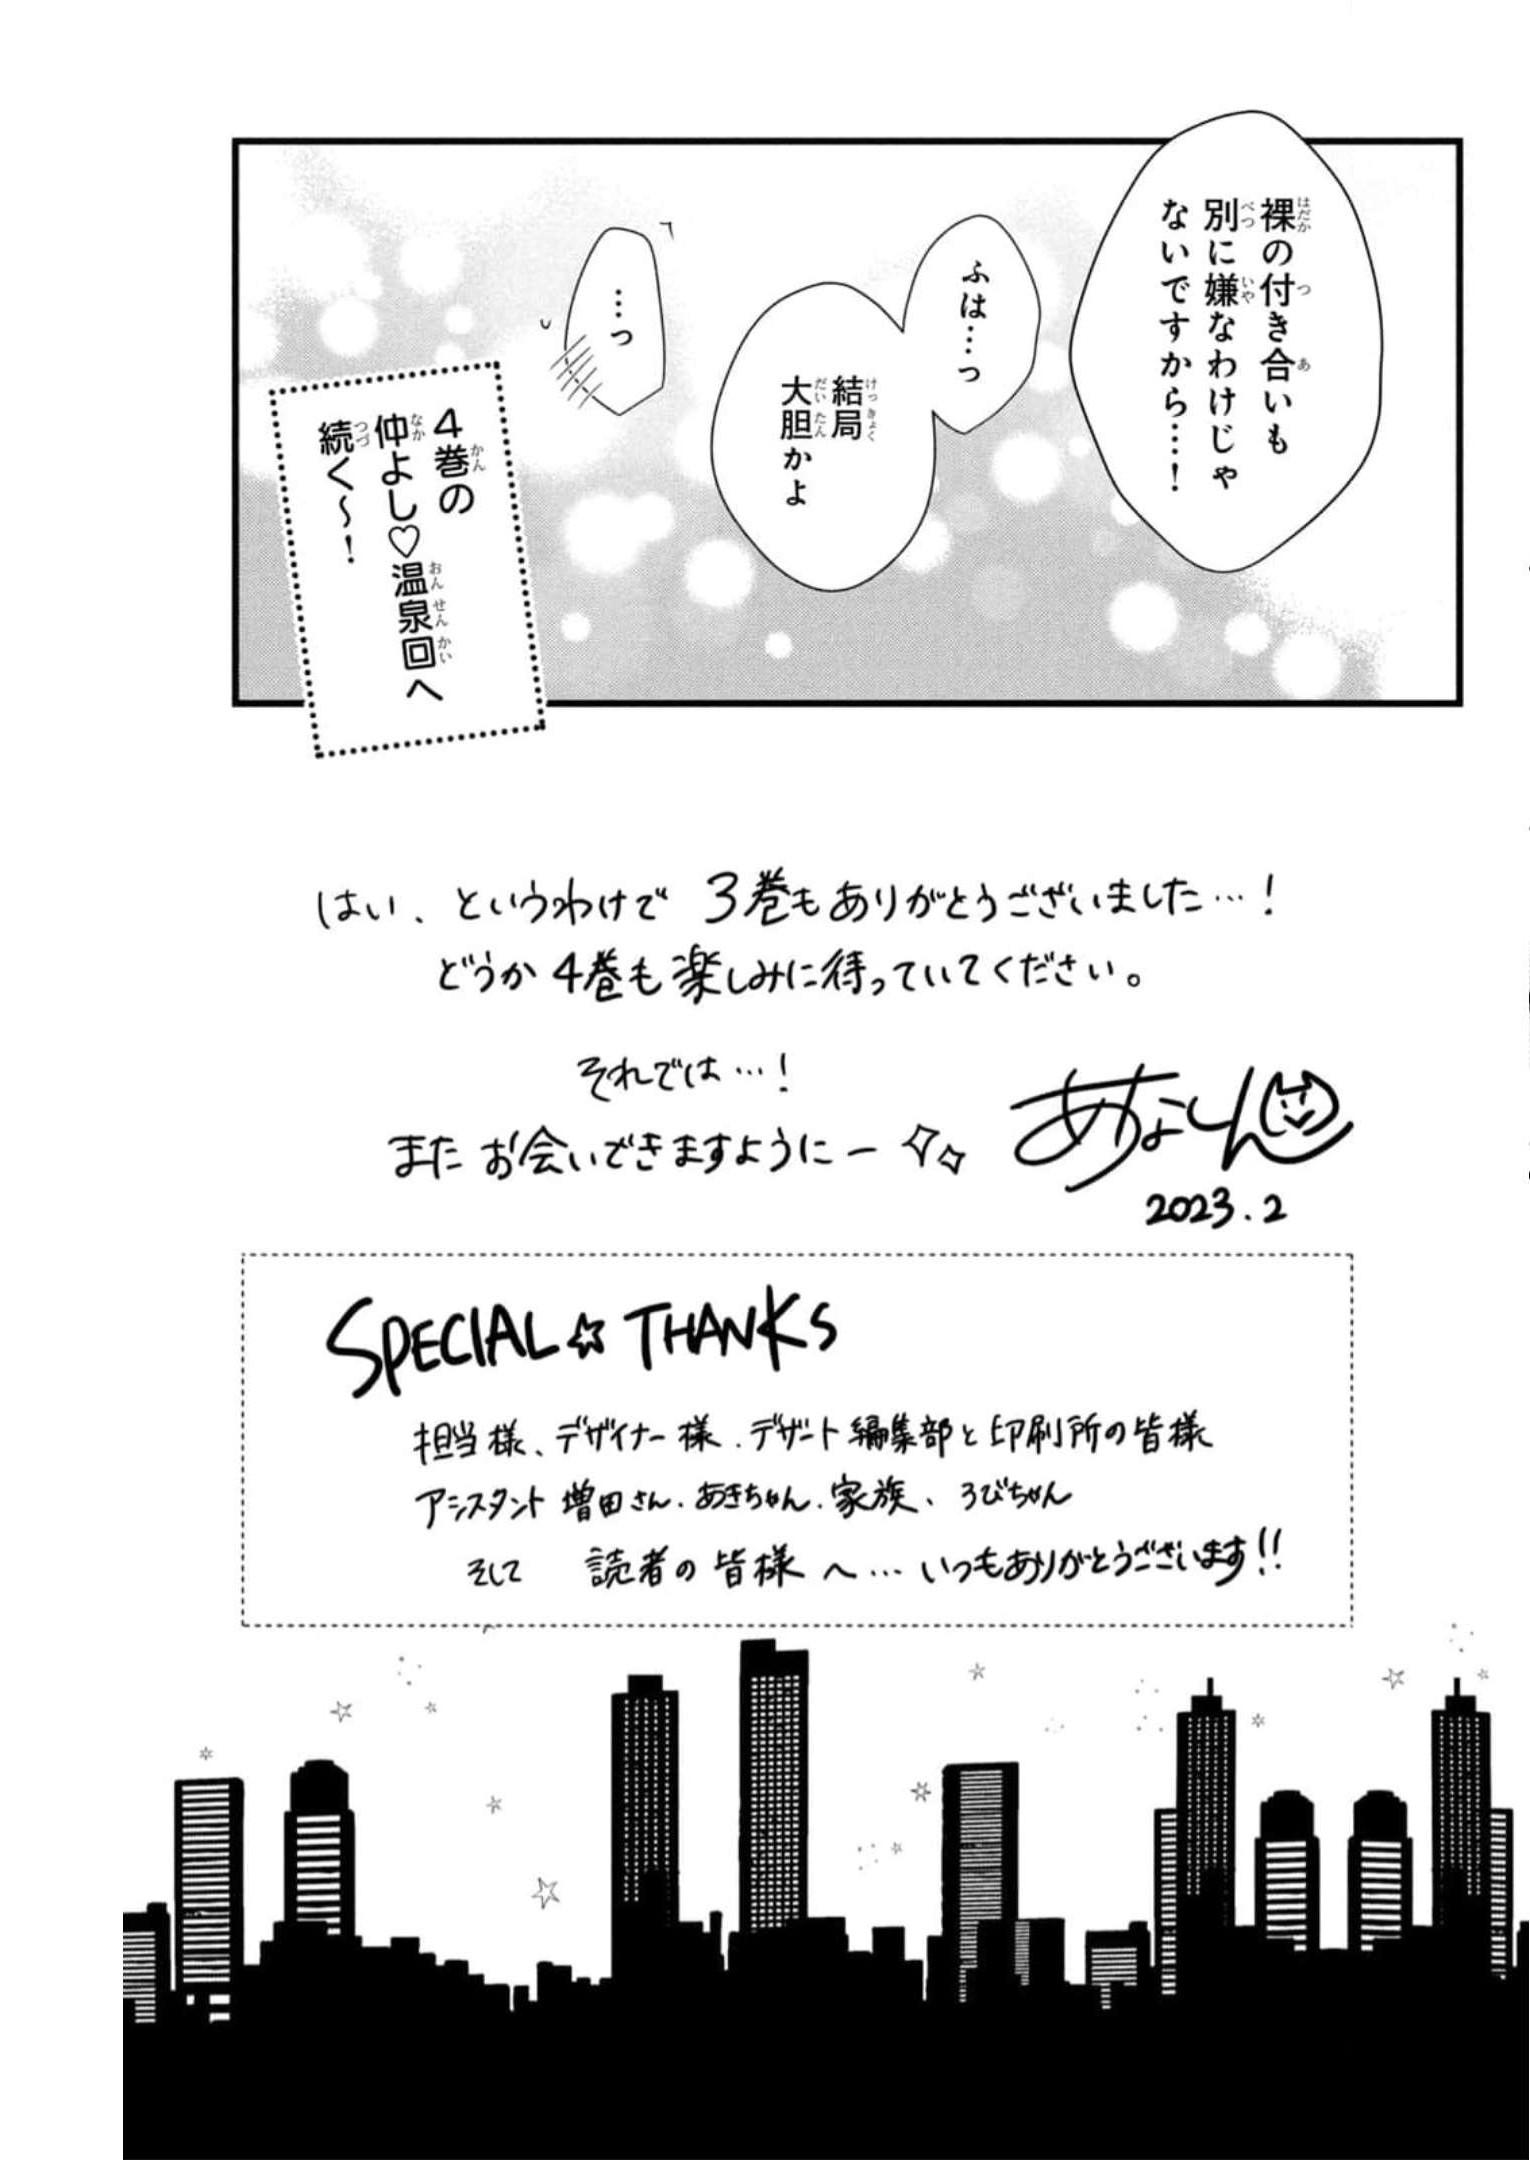 裸の付き合いも
別に嫌なわけじゃ
ないですから…！
ふは…っ
結局
大胆かよ
…っ
4巻の
仲よし♡温泉回へ
続く～！
はい、というわけで 3巻もありがとうございました…！
どうか4巻も楽しみに待っていてください。
それでは…！
また お会いできますようにー
あなしん
2023.2
SPECIAL☆THANKS
担当様、デザイナー様、デザート編集部と印刷所の皆様
アシスタント 増田さん、あきちゃん、家族、ろびちゃん
そして 読者の皆様へ…いつもありがとうございます!!